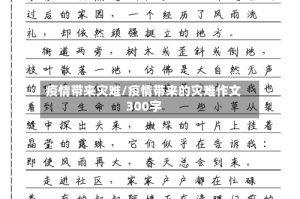 过后的家园，一个经历了风雨流
礼，却依然顽强挺立的地方。
街道两旁，树木歪斜倒地，
枝叶散落一地，仿佛是大自然无声
的
疫情带来灾难/疫情带来的灾难作文
300字
一些小草从裂
缝中探出头来，嫩绿的叶片上挂着
晶莹的露珠，它们似乎在告诉我：
即使风雨再大，春天总会到来。
走进社区，家家户户都在忙碌